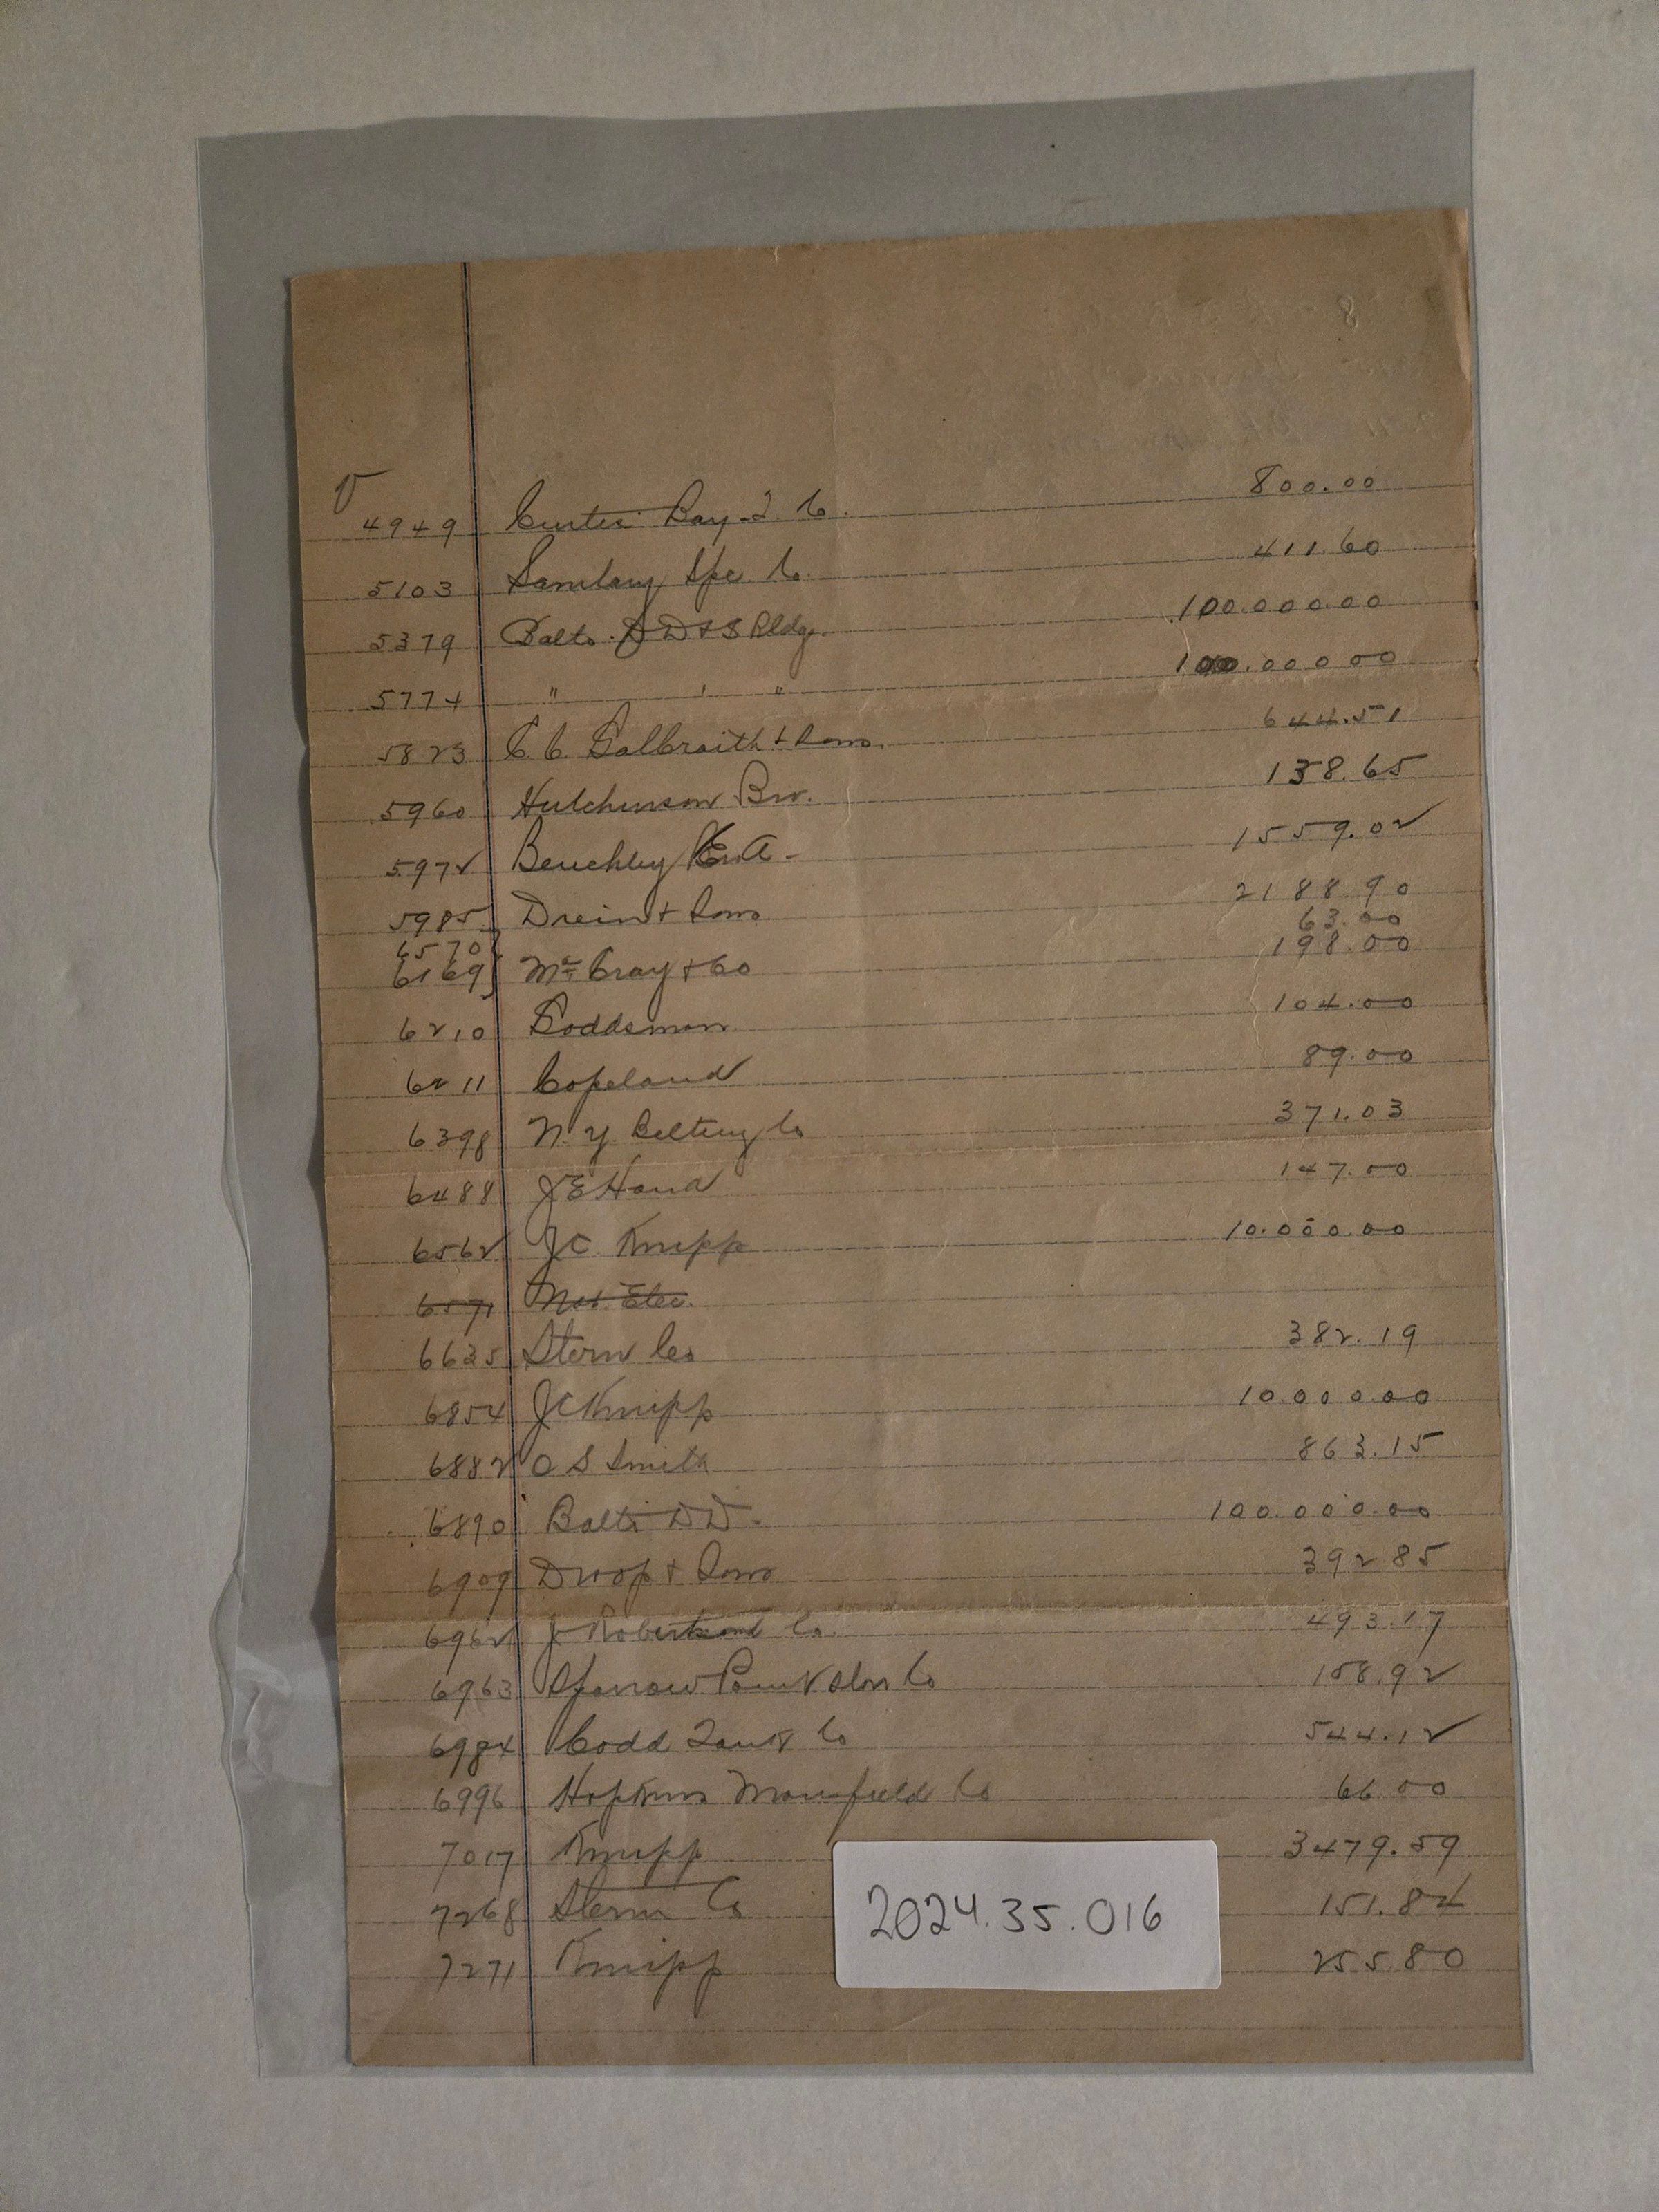 V
4949 Curtis Bay T. Co. 800.00
5103 Sanitary Spe. Co. 411.60
5379 Balto. D D & S Bldg. 100.000.00
5774 " " " 100.000 00
5823 C. C. Galbraith & Sons. 644.51
5960 Hutchinson Br. 138.65
5972 Benchley E. A - 1559.02
5985 Drein & Sons 2188 90
6570 63.00
6169 } Mc Cray & Co 198.00
6210 104.00
6211 Copeland 89.00
6398 N. Y. Belting Co 371.03
6488 J E Hand 147.00
6562 J C. Knipp 10.000.00
6571 Elec.
6635 Stern Co 382.19
6854 J C Knipp 10.000.00
6882 O S Smith 863.15
6890 Balto D D - 100.000.00
6909 Droop & Sons 392 85
6962 J Robertson Co. 493.17
6963 Sparrow Point Co 158.92
6984 Codd Tank Co 544.12
6996 Hopkins Mansfield Co 66 00
7017 Knipp 3479.59
7268 Stern Co 151.84
7271 Knipp 255 80
2024.35.016